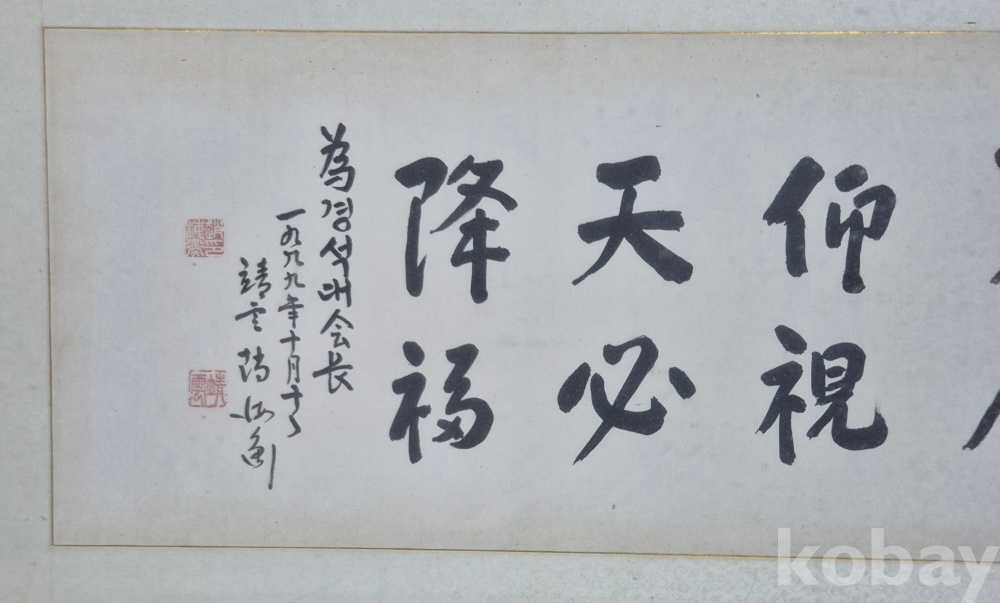 仰視
天必
降福
為경석대会长
一九九九年十月十
靖雲
靖雲
kobay